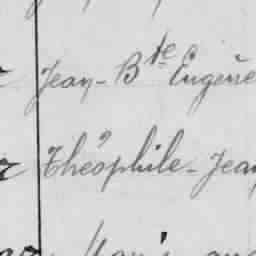 Jean-Bte Eugène
Théophile-Jean